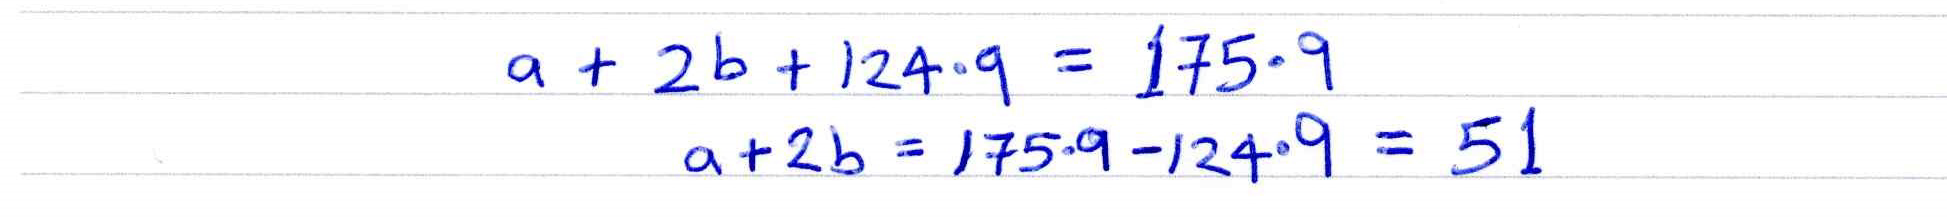 a + 2b + 124.9 = 175.9
a + 2b = 175.9 - 124.9 = 51